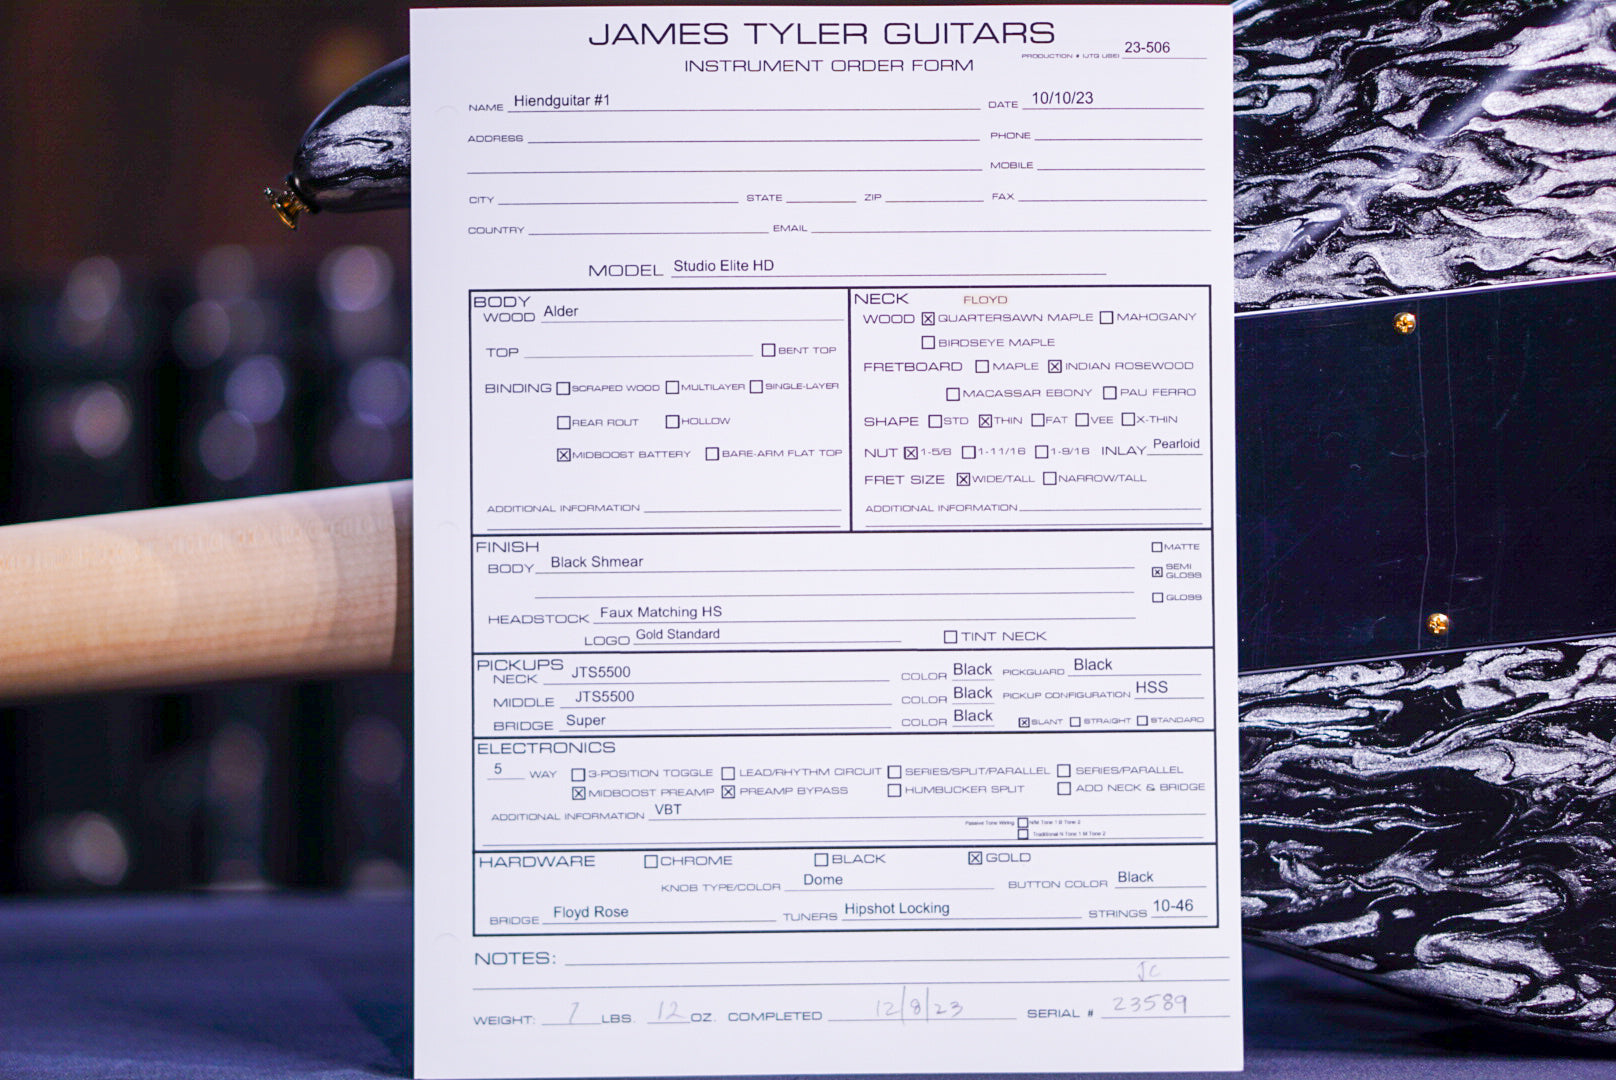 JAMES TYLER GUITARS
INSTRUMENT ORDER FORM
PRODUCTION # (JTG USE) 23-506
NAME Hiendguitar #1 DATE 10/10/23
ADDRESS PHONE
MOBILE
CITY STATE ZIP FAX
COUNTRY EMAIL
MODEL Studio Elite HD
BODY
WOOD Alder
TOP ☐ BENT TOP
BINDING ☐ SCRAPED WOOD ☐ MULTILAYER ☐ SINGLE-LAYER
☐ REAR ROUT ☐ HOLLOW
☒ MIDBOOST BATTERY ☐ BARE-ARM FLAT TOP
ADDITIONAL INFORMATION
NECK FLOYD
WOOD ☒ QUARTERSAWN MAPLE ☐ MAHOGANY
☐ BIRDSEYE MAPLE
FRETBOARD ☐ MAPLE ☒ INDIAN ROSEWOOD
☐ MACASSAR EBONY ☐ PAU FERRO
SHAPE ☐ STD ☒ THIN ☐ FAT ☐ VEE ☐ X-THIN
NUT ☒ 1-5/8 ☐ 1-11/16 ☐ 1-9/16 INLAY Pearloid
FRET SIZE ☒ WIDE/TALL ☐ NARROW/TALL
ADDITIONAL INFORMATION
FINISH ☐ MATTE
BODY Black Shmear ☒ SEMI GLOSS
☐ GLOSS
HEADSTOCK Faux Matching HS
LOGO Gold Standard ☐ TINT NECK
PICKUPS
NECK JTS5500 COLOR Black PICKGUARD Black
MIDDLE JTS5500 COLOR Black PICKUP CONFIGURATION HSS
BRIDGE Super COLOR Black ☒ SLANT ☐ STRAIGHT ☐ STANDARD
ELECTRONICS
5 WAY ☐ 3-POSITION TOGGLE ☐ LEAD/RHYTHM CIRCUIT ☐ SERIES/SPLIT/PARALLEL ☐ SERIES/PARALLEL
☒ MIDBOOST PREAMP ☒ PREAMP BYPASS ☐ HUMBUCKER SPLIT ☐ ADD NECK & BRIDGE
ADDITIONAL INFORMATION VBT
Passive Tone Wiring ☐ N/M Tone 1 B Tone 2
☐ Traditional N Tone 1 M Tone 2
HARDWARE ☐ CHROME ☐ BLACK ☒ GOLD
KNOB TYPE/COLOR Dome BUTTON COLOR Black
BRIDGE Floyd Rose TUNERS Hipshot Locking STRINGS 10-46
NOTES:
JC
WEIGHT: 7 LBS. 12 OZ. COMPLETED 12/8/23 SERIAL # 23589